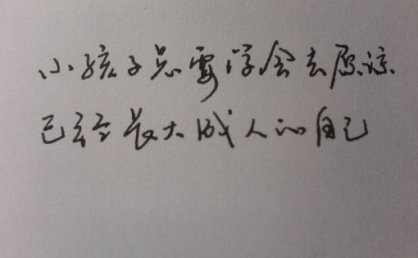 小孩子只要学会去原谅
已经长大成人的自己